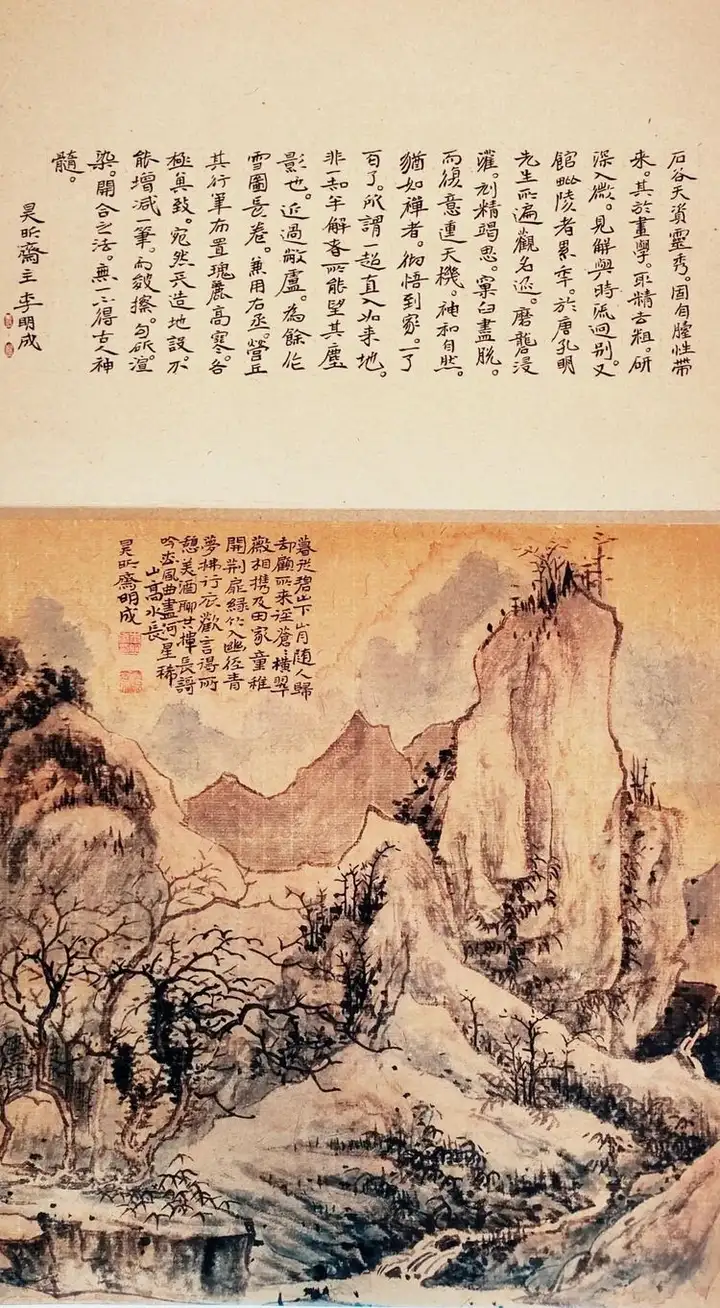 石谷天資靈秀。固自胎性帶
來。其於畫學。取精去粗。研
深入微。見解與時流迥别。又
館毗陵者累年。於唐孔明
先生所遍觀名迹。磨礱浸
灌。刻精竭思。窠臼盡脱。
而復意連天機。神和自然。
猶如禪者。彻悟到家。一了
百了。所謂一超直入如来地。
非一知半解者所能望其塵
影也。近過敝廬。為餘作
雪圖長卷。兼用右丞。營丘
其行筆布置瑰麗高寒。各
極其致。宛然天造地設。不
能增減一筆。而皴擦。勾斫渲
染。開合之法。無一不得古人神
髓。
昊昕齋主 李明成
暮從碧山下山月随人歸
却顧所来徑蒼蒼横翠
薇相携及田家童稚
開荆扉緑竹入幽徑青
夢拂行衣歡言得所
憩美酒聊共揮長謌
吟松風曲盡河星稀
山高水長
昊昕齋明成